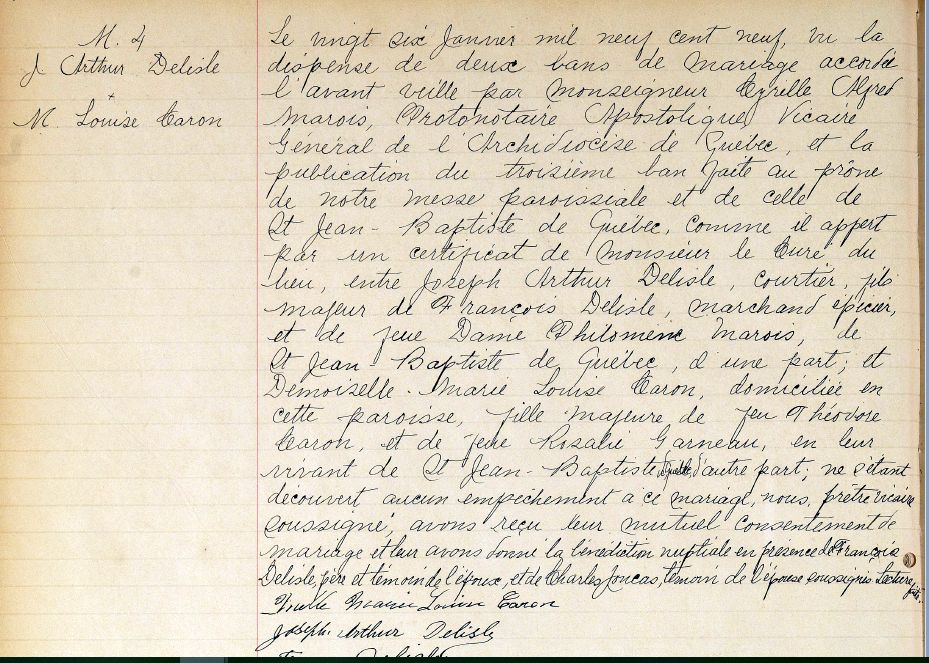 M. 4
J Arthur Delisle
+
M. Louise Caron
Le vingt six Janvier mil neuf cent neuf, vu la
dispense de deux bans de mariage accordée
l'avant veille par Monseigneur Cyrille Alfred
Marois, Protonotaire Apostolique, Vicaire
Général de l'Archidiocèse de Québec, et la
publication du troisième ban faite au prône
de notre messe paroissiale et de celle de
St Jean-Baptiste de Québec, comme il appert
par un certificat de Monsieur le Curé du
lieu, entre Joseph Arthur Delisle, courtier, fils
majeur de François Delisle, marchand épicier,
et de feue Dame Philomène Marois, de
St Jean-Baptiste de Québec, d'une part; et
Demoiselle Marie Louise Caron, domiciliée en
cette paroisse, fille majeure de feu Théodore
Caron, et de feue Rosalie Garneau, en leur
vivant de St Jean-Baptiste de Québec, d'autre part; ne s'étant
découvert aucun empêchement à ce mariage, nous, prêtre vicaire
soussigné, avons reçu leur mutuel consentement de
mariage et leur avons donné la bénédiction nuptiale en présence de François
Delisle, père et témoin de l'époux, et de Charles Joncas, témoin de l'épouse soussignés. Lecture faite.
Marie Louise Caron
Joseph. Arthur Delisle
Delisle